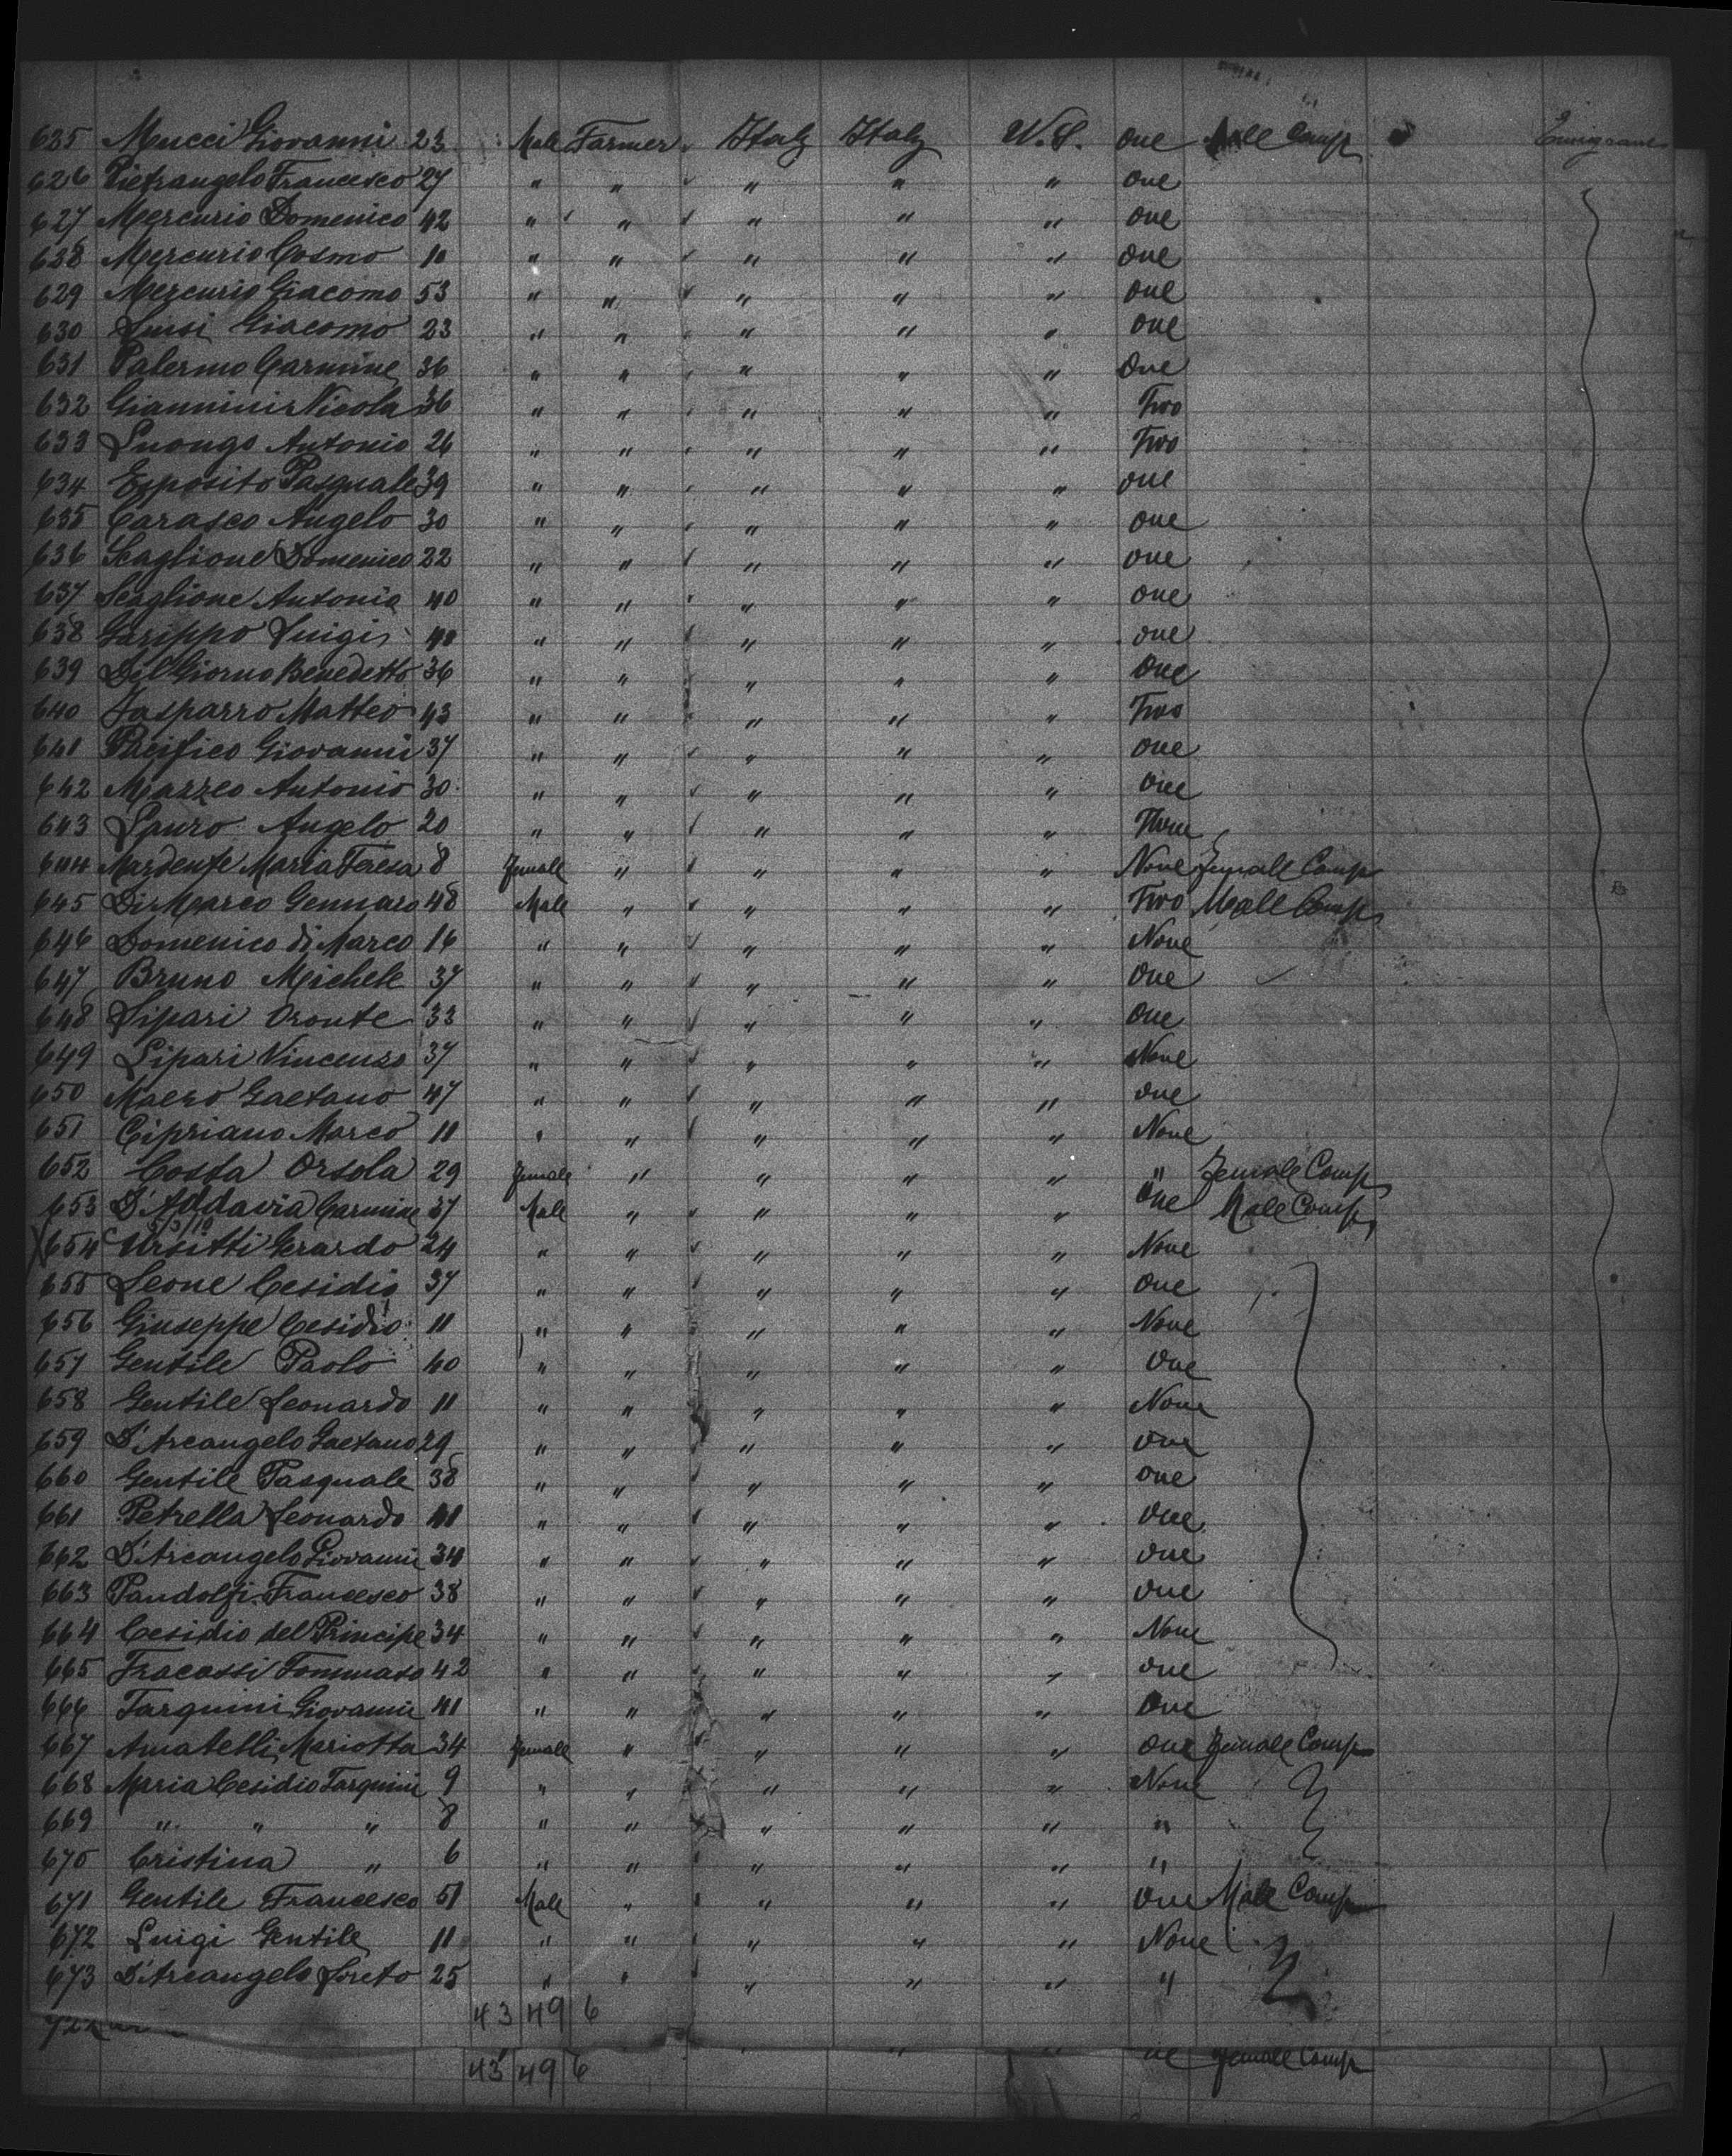 625 Mucci Giovanni 23 Male Farmer Italy Italy U.S. One Male Comp Emigrant
626 Pietrangelo Francesco 27 " " " " " One
627 Mercurio Domenico 42 " " " " " One
628 Mercurio Cosmo 10 " " " " " One
629 Mercurio Giacomo 53 " " " " " One
630 Luisi Giacomo 23 " " " " " One
631 Palermo Carmine 36 " " " " " One
632 Giannini Nicola 36 " " " " " Two
633 Luongo Antonio 26 " " " " " Two
634 Esposito Pasquale 39 " " " " " One
635 Carasco Angelo 30 " " " " " One
636 Scaglione Domenico 22 " " " " " One
637 Scaglione Antonio 40 " " " " " One
638 Garippo Luigi 40 " " " " " One
639 Del Giorno Benedetto 36 " " " " " One
640 Gasparro Matteo 43 " " " " " Two
641 Pacifico Giovanni 37 " " " " " One
642 Mazzeo Antonio 30 " " " " " One
643 Lauro Angelo 20 " " " " " Three
644 Mardente Maria Teresa 8 Female " " " " None Female Comp
645 Di Marco Gennaro 48 Male " " " " Two Male Comp
646 Domenico di Marco 16 " " " " " None
647 Bruno Michele 37 " " " " " One
648 Lipari Oronte 33 " " " " " One
649 Lipari Vincenzo 37 " " " " " None
650 Maero Gaetano 47 " " " " " One
651 Cipriano Marco 11 " " " " " None
652 Costa Orsola 29 Female " " " " " Female Comp
653 D'Addavia Carmine 37 Male " " " " One Male Comp
X 654 Ursitti Gerardo 24 " " " " " None
655 Leone Cesidio 37 " " " " " One
656 Giuseppe Cesidio 11 " " " " " None
657 Gentile Paolo 40 " " " " " One
658 Gentile Leonardo 11 " " " " " None
659 D'Arcangelo Gaetano 29 " " " " " One
660 Gentile Pasquale 38 " " " " " One
661 Petrella Leonardo 41 " " " " " One
662 D'Arcangelo Giovanni 34 " " " " " One
663 Pandolfi Francesco 38 " " " " " One
664 Cesidio del Principe 34 " " " " " None
665 Fracassi Tommaso 42 " " " " " One
666 Tarquini Giovanni 41 " " " " " One
667 Amatelli Mariotta 34 Female " " " " One Female Comp
668 Maria Cesidio Tarquini 9 " " " " " None
669 " " " 8 " " " " " "
670 Cristina " 6 " " " " " "
671 Gentile Francesco 51 Male " " " " One Male Comp
672 Luigi Gentile 11 " " " " " None
673 D'Arcangelo Loreto 25 " " " " " "
43 49 6
43 49 6 Female Comp